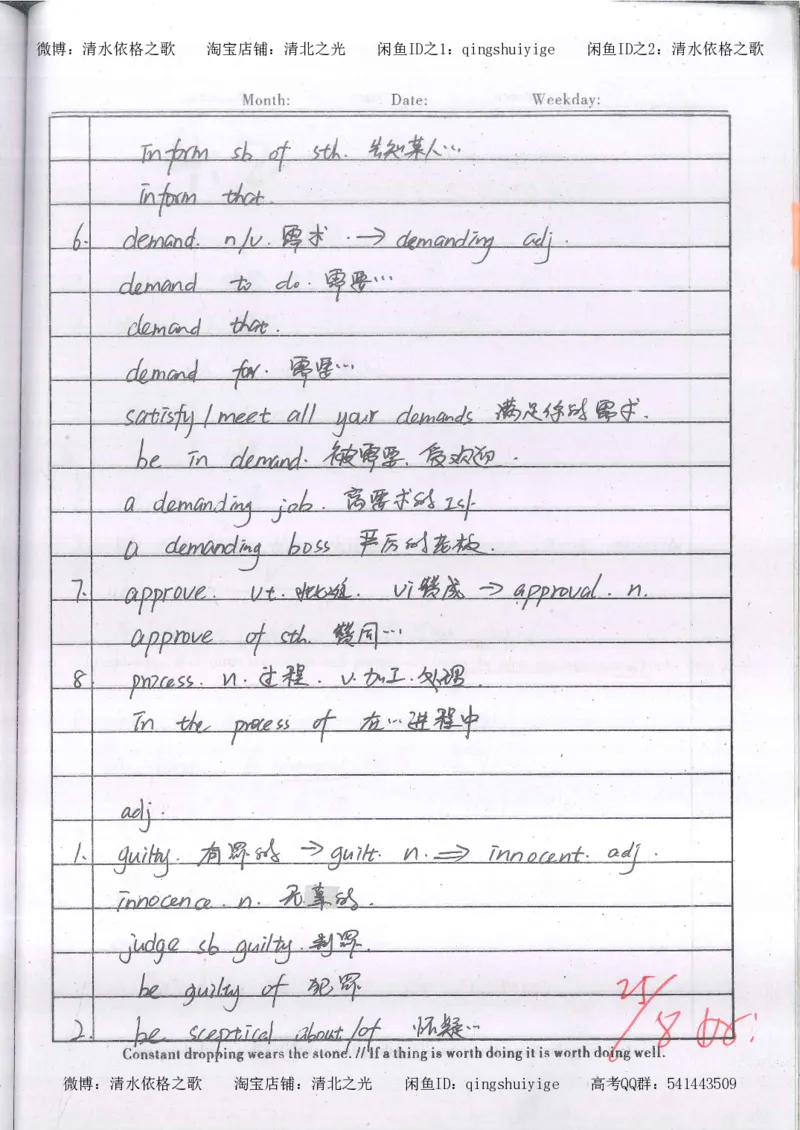 微博：清水依格之歌 淘宝店铺：清北之光 闲鱼ID之1：qingshuiyige 闲鱼ID之2：清水依格之歌
Month: Date: Weekday:
Inform sb of sth. 告知某人…
inform that.
6. demand. n/v. 需求 → demanding adj.
demand to do. 需要…
demand that.
demand for. 需要…
satisfy/meet all your demands 满足你的需求.
be in demand. 被需要. 受欢迎.
a demanding job. 高要求的工作
a demanding boss 严厉的老板.
7. approve. vt. 批准. vi 赞成 → approval. n.
approve of sth. 赞同…
8. process. n. 过程. v. 加工. 处理.
In the process of 在…进程中
adj.
1. guilty. 有罪的 → guilt. n. ⇒ innocent. adj.
innocence. n. 无辜的.
judge sb guilty. 判罪.
be guilty of 犯罪
2. be sceptical about/of 怀疑…
25/8
Constant dropping wears the stone. // If a thing is worth doing it is worth doing well.
微博：清水依格之歌 淘宝店铺：清北之光 闲鱼ID：qingshuiyige 高考QQ群：541443509